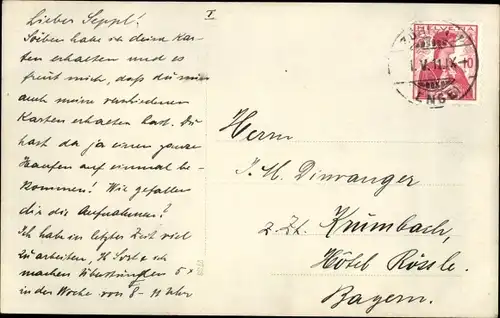 I
Lieber Seppl!
Soeben habe ich deine Kar-
ten erhalten und es
freut mich, daß du nun
auch meine verschiedenen
Karten erhalten hast. Du
hast da ja einen ganzen
Haufen auf einmal be-
kommen! Wie gefallen
dir die Aufnahmen?
Ich habe in letzter Zeit viel
zu arbeiten, H. Sost & ich
machen Überstunden 5 x
in der Woche von 8 - 11 Uhr
HELVETIA
10
1. V. 11. IX
(ENGE)
Herrn
J. M. Dinvanger
z. Zt. Krumbach,
Hôtel Rössle.
Bayern.